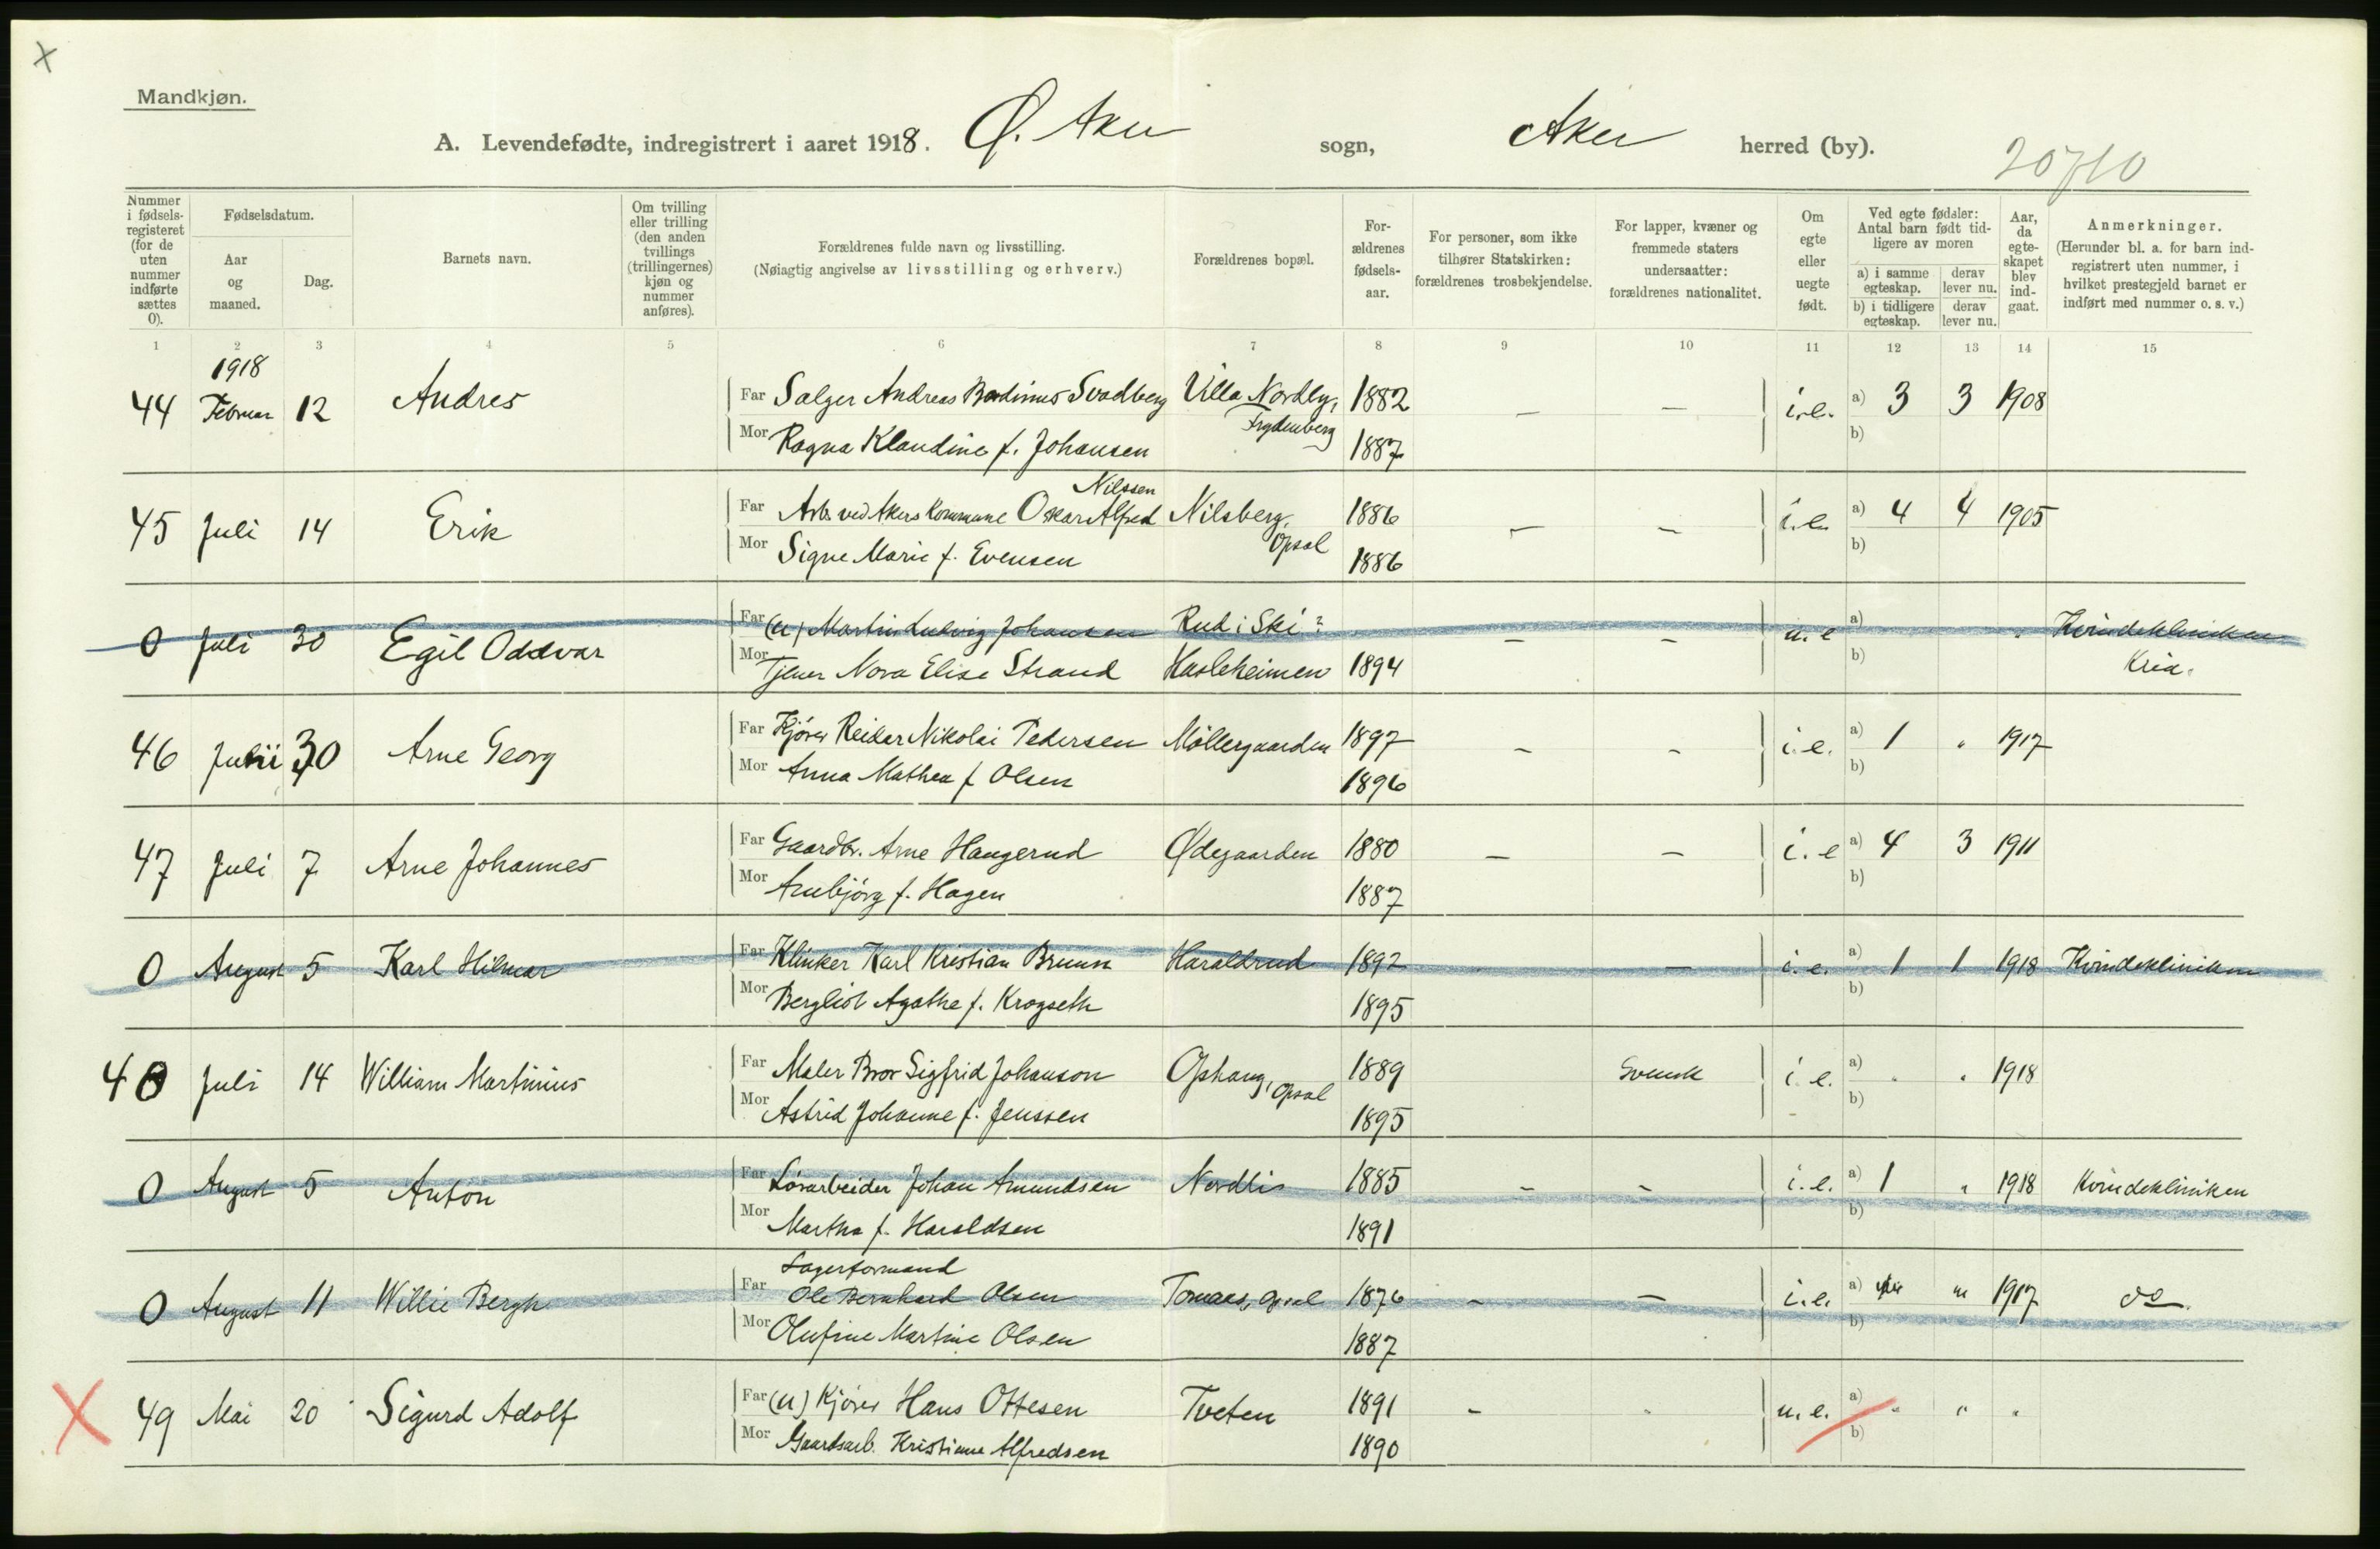 Mandkjøn.
A. Levendefødte, indregistrert i aaret 1918. Ø. Aker sogn, Aker herred (by).
20710
Nummer i fødsels-registeret (for de uten nummer indførte sættes 0).
Fødselsdatum.
Aar og maaned.
Dag.
Barnets navn.
Om tvilling eller trilling (den anden tvillings (trillingernes) kjøn og nummer anføres).
Forældrenes fulde navn og livsstilling.
(Nøiagtig angivelse av livsstilling og erhverv.)
Forældrenes bopæl.
For-ældrenes fødsels-aar.
For personer, som ikke tilhører Statskirken: forældrenes trosbekjendelse.
For lapper, kvæner og fremmede staters undersaatter: forældrenes nationalitet.
Om egte eller uegte født.
Ved egte fødsler: Antal barn født tid-ligere av moren
a) i samme egteskap.
derav lever nu.
b) i tidligere egteskap.
derav lever nu.
Aar, da egte-skapet blev ind-gaat.
Anmerkninger.
(Herunder bl. a. for barn ind-registrert uten nummer, i hvilket prestegjeld barnet er indført med nummer o. s. v.)
1 2 3 4 5 6 7 8 9 10 11 12 13 14 15
1918
44 Februar 12 Andres Far Salger Andreas Bardinus Svadberg Villa Nordly, 1882 — — i.e. a) 3 3 1908
Frydenberg
Mor Ragna Klaudine f. Johansen 1887 b)
Nilssen
45 Juli 14 Erik Far Arb. ved Akers Kommune Oskar Alfred Nilsberg, 1886 — — i.e. a) 4 4 1905
Opsal
Mor Signe Marie f. Evensen 1886 b)
0 Juli 30 Egil Oddvar Far (u) Martin Ludvig Johansen Rud i Ski? — — u.e a) " Kvindekliniken
Mor Tjener Nora Elise Strand Hasleheimen 1894 b) Kria.
46 Juli 30 Arne Georg Far Kjører Reidar Nikolai Pedersen Møllergaarden 1897 — - i.e. a) 1 " 1917
Mor Anna Mathea f Olsen 1896 b)
47 Juli 7 Arne Johannes Far Gaardbr. Arne Haugerud Ødegaarden 1880 — — i.e a) 4 3 1911
Mor Arnbjörg f. Hagen 1887 b)
0 August 5 Karl Hilmar Far Klinker Karl Kristian Bruun Haraldrud 1892 — i.e. a) 1 1 1918 Kvindekliniken
Mor Bergliot Agathe f. Krogseth 1895 b)
48 Juli 14 William Martinius Far Maler Bror Sigfrid Johanson Ophaug, Opsal 1889 Svensk i.e. a) " " 1918
Mor Astrid Johanne f. Jenssen 1895 b)
0 August 5 Anton Far Løsarbeider Johan Amundsen Nordli 1885 — - i.e. a) 1 " 1918 Kvindekliniken
Mor Martha f. Haraldsen 1891 b)
Lagerformand
0 August 11 Willie Bergh Far Ole Bernhard Olsen Tomaas, Opsal 1876 — — i.e. a) " 1917 do.
Mor Olufine Martine Olsen 1887 b)
49 Mai 20 Sigurd Adolf Far (u) Kjører Hans Ottesen Tveten 1891 - u.e. a) " " "
Mor Gaardsarb. Kristiane Alfredsen 1890 b)